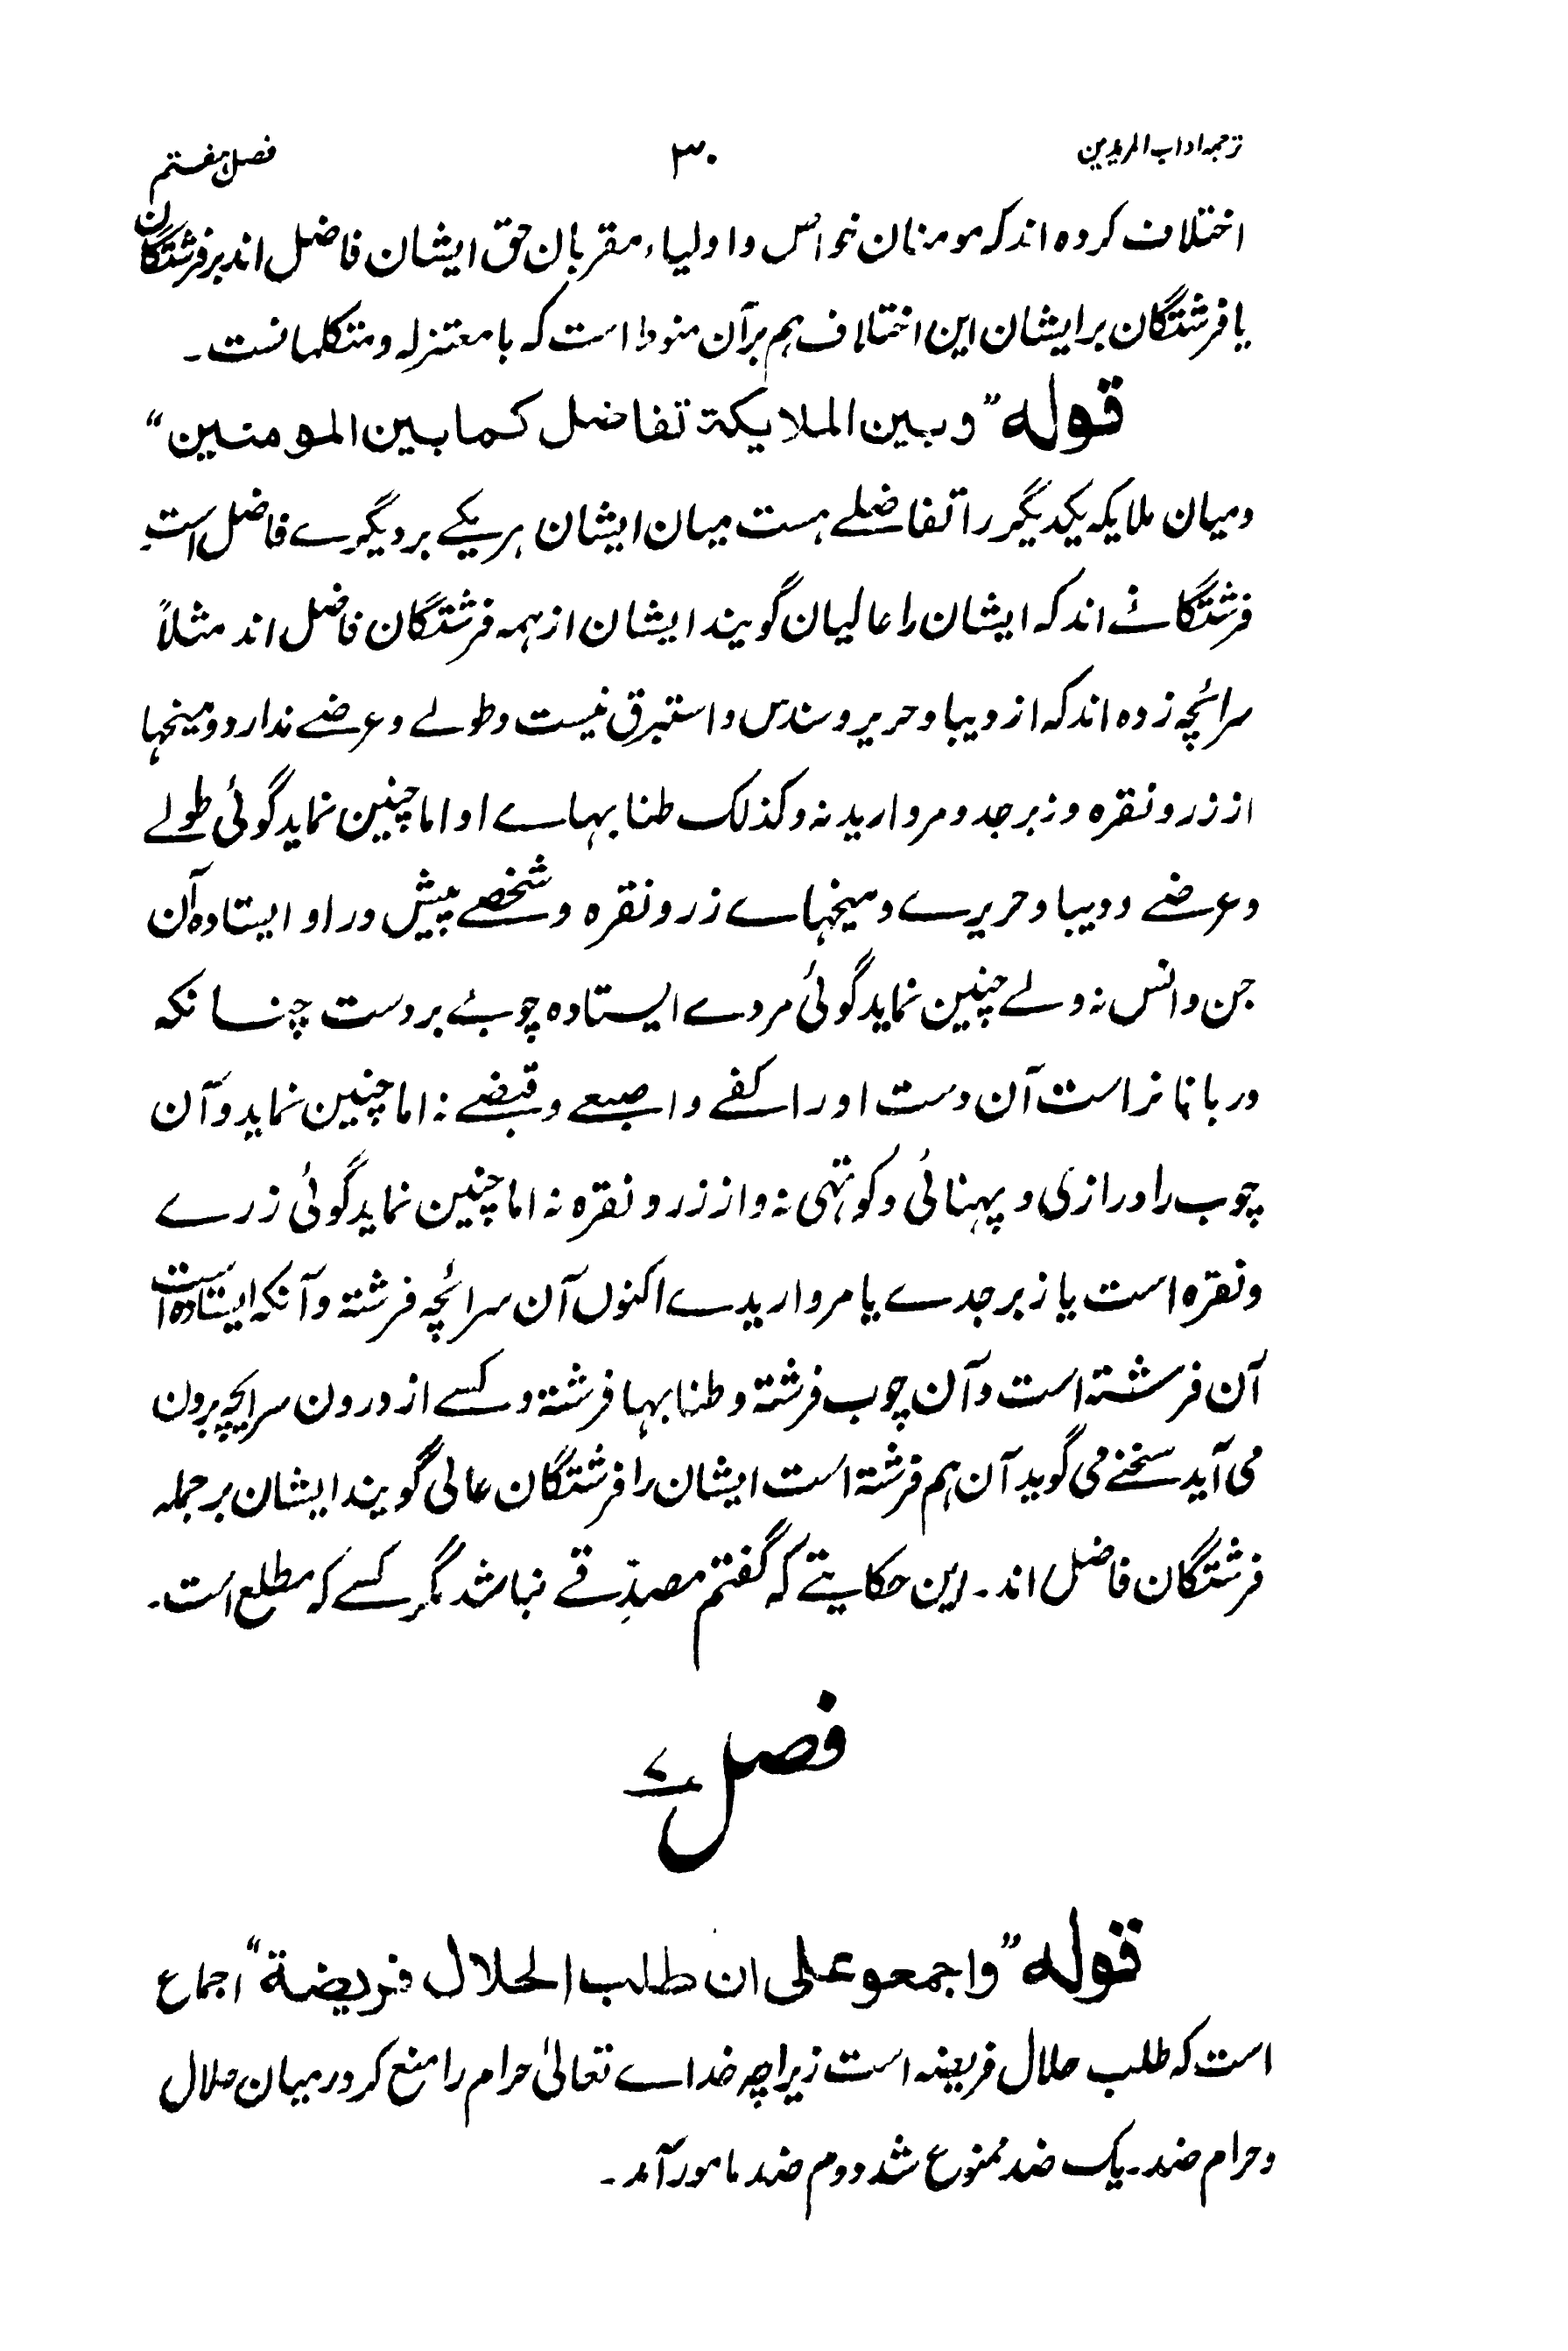 ترجمہ اداب المریدین ۳۰ فصل ہفتم
اختلاف کرده اند کہ مومنان خواص و اولیاء مقربان حق ایشان فاضل اند بر فرشتگان
یا فرشتگان بر ایشان این اختلاف ہم برآن منوط است کہ با معتزلہ و متکلمانست ۔
قولہ ”وبین الملایکۃ تفاضل کما بین المومنین“
ومیان ملایکہ یکدیگر را تفاضلے ہست میان ایشان ہر یکے بر دیگرے فاضل است
فرشتگانے اند کہ ایشان را عالیان گویند ایشان از ہمہ فرشتگان فاضل اند مثلاً
سرائچہ زده اند کہ از دیبا و حریر و سندس و استبرق نیست و طولے و عرضے ندارد و میخہا
از زر و نقره و زبرجد و مروارید نہ و کذلک طنابہاے او اما چنین نماید گوئی طولے
و عرضے و دیبا و حریرے و میخہاے زر و نقره و شخصے پیش در او ایستاده آن
جن و انس نہ ولے چنین نماید گوئی مردے ایستاده چوبے بر دست چنانکہ
دربانانراست آن دست او را کفے و اصبعے و قبضے نہ اما چنین نماید و آن
چوب را درازی و پہنائی و کوتہی نہ و از زر و نقره نہ اما چنین نماید گوئی زرے
و نقره است یا زبرجدے یا مرواریدے اکنوں آن سرائچہ فرشتہ و آنکہ ایستاده است
آن فرشتہ است و آن چوب فرشتہ و طنابہا فرشتہ و کسے از درون سرایچہ برون
می آید سخنے می گوید آن ہم فرشتہ است ایشان را فرشتگان عالی گویند ایشان بر جملہ
فرشتگان فاضل اند ۔ این حکایتے کہ گفتم مصدِّقے نباشد مگر کسے کہ مطلع است ۔
فصل ۷
قولہ ”واجمعو علی ان طلب الحلال فریضۃ“ اجماع
است کہ طلب حلال فریضہ است زیراچہ خداے تعالیٰ حرام را منع کرد و رمیان حلال
و حرام ضد ۔ یک ضد ممنوع شد دوم ضد مامور آمد ۔